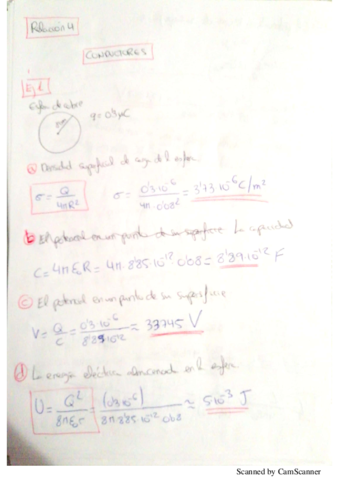 Relación 4
CONDUCTORES
Ej 1
Esfera de cobre
q = 0'3 μC
a) Densidad superficial de carga del esfera
σ = Q / 4πR² σ = 0'3·10⁻⁶ / 4π·0'08² = 3'73·10⁻⁶ C/m²
b) El potencial en un punto de su superficie La capacidad
C = 4πε₀R = 4π·8'85·10⁻¹²·0'08 = 8'89·10⁻¹² F
c) El potencial en un punto de su superficie
V = Q / C = 0'3·10⁻⁶ / 8'89·10⁻¹² = 33745 V
d) La energía eléctrica almacenada en la esfera
U = Q² / 8πε₀r = (0'3·10⁻⁶) / 8π·8'85·10⁻¹²·0'08 ≈ 5·10⁻³ J
Scanned by CamScanner